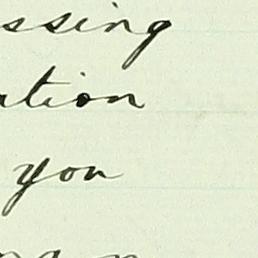 ssing
ation
you